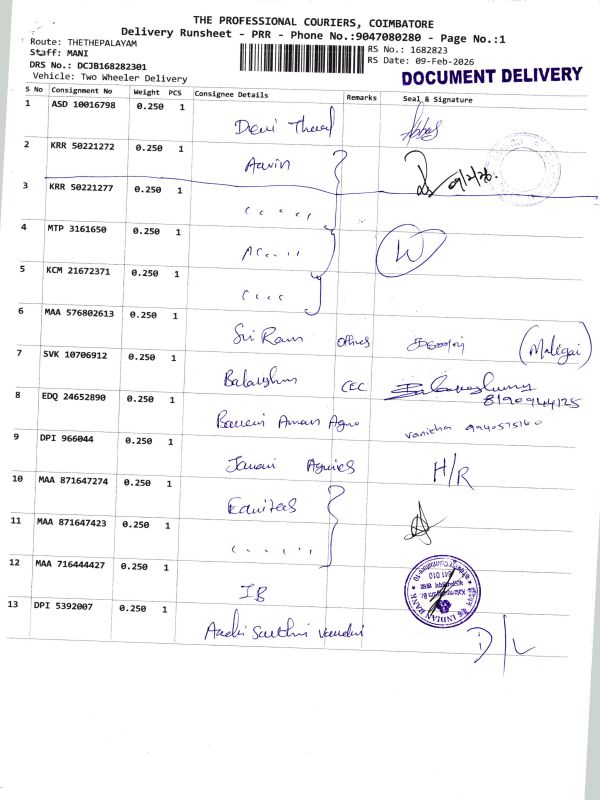 THE PROFESSIONAL COURIERS, COIMBATORE
Delivery Runsheet - PRR - Phone No.:9047080280 - Page No.:1
Route: THETHEPALAYAM
Staff: MANI
DRS No.: DCJB168282301
Vehicle: Two Wheeler Delivery
RS No.: 1682823
RS Date: 09-Feb-2026
DOCUMENT DELIVERY
S No Consignment No Weight PCS Consignee Details Remarks Seal & Signature
1 ASD 10016798 0.250 1
2 KRR 50221272 0.250 1 09/2/26
3 KRR 50221277 0.250 1
4 MTP 3161650 0.250 1
5 KCM 21672371 0.250 1
6 MAA 576802613 0.250 1 Sri Ram (Maligai)
7 SVK 10706912 0.250 1 CEC
8190944125
8 EDQ 24652890 0.250 1 Vanitha 9940575160
9 DPI 966044 0.250 1 H/R
10 MAA 871647274 0.250 1
11 MAA 871647423 0.250 1
12 MAA 716444427 0.250 1 IB INDIAN BANK
13 DPI 5392007 0.250 1 D/L